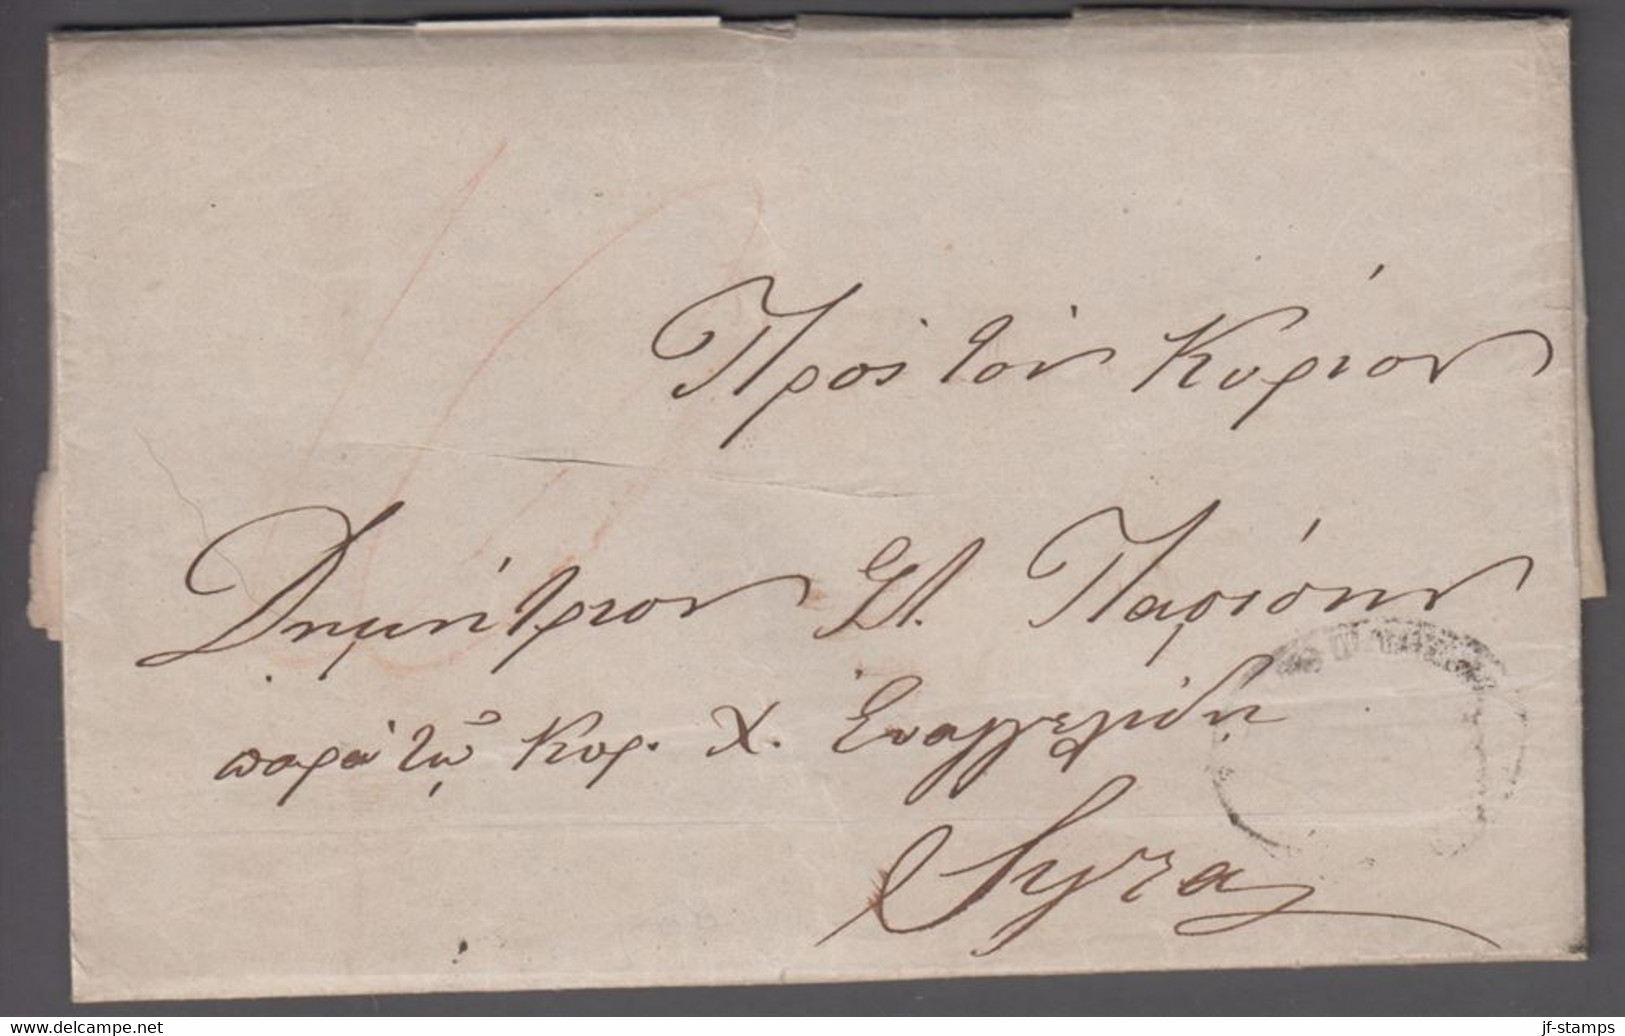 Πρὸς τὸν Κύριον
Δημήτριον Στ. Παρίσην
παρὰ τῷ Κυρ. Χ. Εὐαγγελίδῃ
Syra
www.delcampe.net
jf-stamps